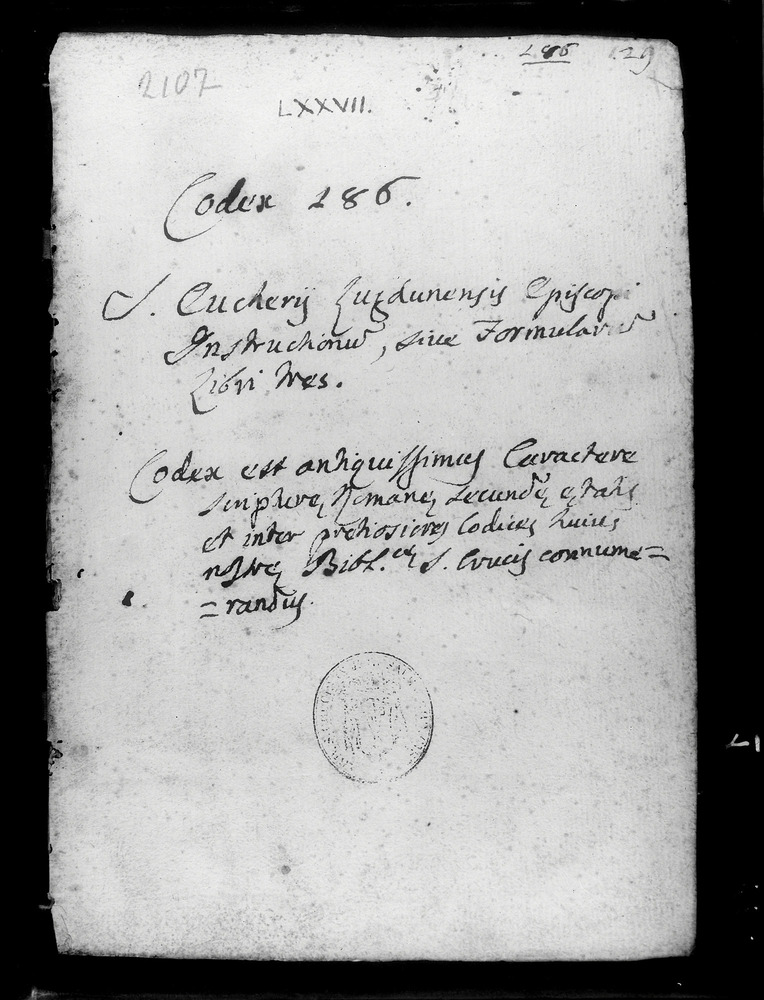 186 129
2107
LXXVII.
Codex 186.
S. Eucherij Lugdunensis Episcopi
Instructionū, siue Formulariū
Libri tres.
Codex est antiquissimus Caractere
scripturę Romanę, secundę ętatis
et inter pretiosiores Codices huius
nostrę Bibl.cę S. Crucis connume=
=randus.